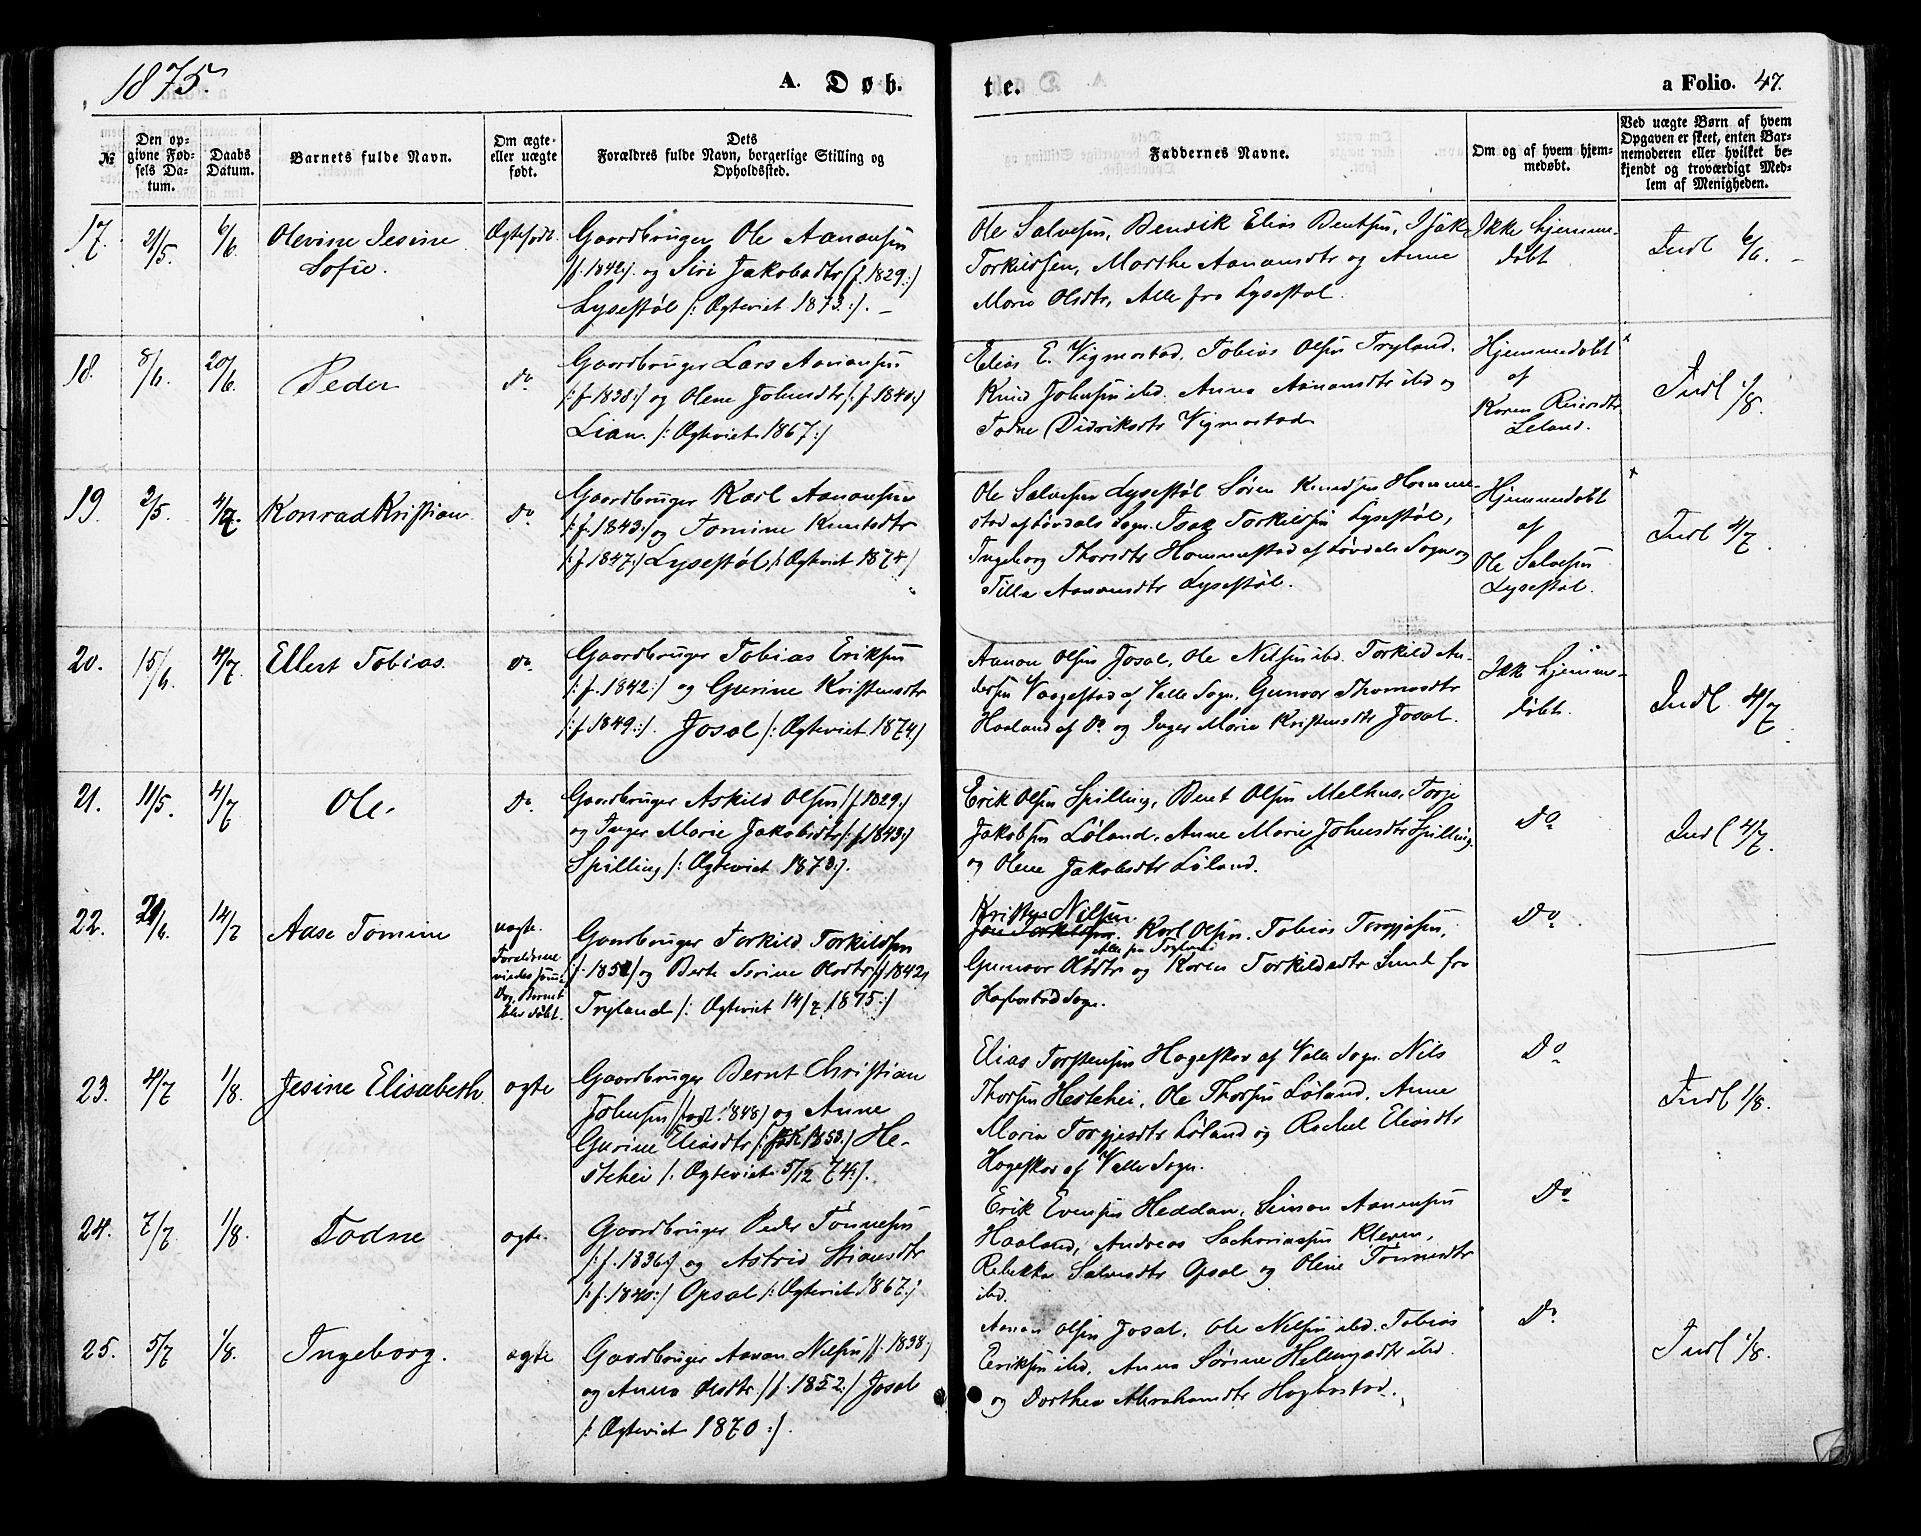 1875.
A. Døb-
te.
a Folio. 47.
№
Den op-
givne Fød-
sels Da-
tum.
Daabs
Datum.
Barnets fulde Navn.
Om ægte-
eller uægte
født.
Dets
Forældres fulde Navn, borgerlige Stilling og
Opholdssted.
Faddernes Navne.
Om og af hvem hjem-
medøbt.
Ved uægte Børn af hvem
Opgaven er skeet, enten Bar-
nemoderen eller hvilket be-
kjendt og troværdigt Med-
lem af Menigheden.
17.
21/5.
6/6.
Olevine Jesine
Sofie.
Ægtefødt.
Gaardbruger Ole Aanensen
/f. 1842/. og Siri Jakobsdtr (f. 1829:)
Lysestøl /: Ægteviet 1873:/. –
Ole Salvesen, Bendik Elias Bentsen, Isak
Torkildsen, Marthe Aanensdtr og Anne
Marie Olsdtr, Alle fra Lysestøl.
Ikke hjemme-
døbt
Indl 6/6.
18.
8/6.
20/6.
Peder
Do
Gaardbruger Lars Aanensen
/:f. 1838:/ og Olene Johnsdtr /:f. 1840:/
Lian. /: Ægteviet 1867:/
Elias E. Vigmostad, Tobias Olsen Tryland.
Knud Johnsen ibd. Anna Aanensdtr ibd og
Todne Didriksdtr Vigmostad
Hjemmedøbt
af
Karen Reiersdtr
Leland.
Indl 1/8.
19.
2/5.
4/7.
Konrad Kristian
Do
Gaardbruger Karl Aanensen
/:f. 1843:/ og Tomine Knutsdtr
/:f. 1847:/ Lysestøl /: Ægteviet 1874/
Ole Salvesen Lysestøl. Søren Knudsen Homme-
stad af Løvdals Sogn. Isak Torkildsen Lysestøl,
Ingeborg Thorsdtr Hommestad af Løvdals Sogn og
Tilla Aanensdtr Lysestøl.
Hjemmedøbt
af
Ole Salvesen
Lysestøl.
Indl 4/7.
20.
15/6.
4/7.
Ellert Tobias.
Do
Gaardbruger Tobias Eriksen
/:f. 1842:/ og Gurine Kristensdtr
/:f. 1849:/. Josal /: Ægteviet 1874/
Aanon Olsen Josal, Ole Nilsen ibd. Torkild An-
dersen Vaagestad af Valle Sogn, Gunvor Thomasdtr
Haaland af Do og Inger Marie Kristensdtr Josal.
Ikk hjemme-
døbt.
Indl 4/7
21.
11/5.
4/7.
Ole.
Do
Gaardbruger Askild Olsen /f. 1829:/
og Inger Marie Jakobsdtr /:f. 1843:/
Spilling /: Ægteviet 1873:/.
Erik Olsen Spilling, Bent Olsen Melhus, Torje
Jakobsen Løland. Anne Marie Johnsdtr Spilling,
og Olene Jakobsdtr Løland.
Do
Indl 4/7.
22.
21/6.
14/7
Aase Tomine
uægte.
Forældrene
viedes samme
Dag Barnet
blev døbt.
Gaardbruger Torkild Torkildsen
/f. 1851/ og Berte Serine Olsdtr /f. 1842/
Tryland /: Ægteviet 14/7 1875:/
Kristen Nilsen
Jon Torkildsen. Karl Olsen. Tobias Torgjesen,
Alle fra Tryland
Gunvor Olsdtr og Karen Torkildsdtr Sund fra
Hægbostad Sogn.
Do
23.
4/7
1/8.
Jesine Elisabeth.
ægte
Gaardbruger Bernt Christian
Johnsen /født. 1848/ og Anne
Gurine Eliasdtr /:født 1853:/ He-
stehei /: Ægteviet 5/12 74:/.
Elias Torstensen Hageskov af Valle Sogn. Nils
Thorsen Hestehei, Ole Thorsen Løland, Anne
Marie Torgjesdtr Løland og Rachel Eliasdtr
Hageskov af Valle Sogn.
Do
Indl 1/8.
24.
7/7
1/8.
Todne
ægte.
Gaardbruger Peder Tønnesen
/:f. 1836:/ og Astrid Stiansdtr
/:f. 1840:/ Opsal /: Ægteviet 1867:/
Erik Evensen Heddan, Simon Aanensen
Haaland, Andreas Sachariasen Kleven,
Rebekka Salvesdtr Opsal og Olene Tønnesdtr
ibd.
Do
25.
5/7
1/8.
Ingeborg.
ægte
Gaardbruger Aanon Nilsen /f. 1838:/
og Anna Olsdtr /f. 1852:/ Josal
/: Ægteviet 1870:/.
Aanon Olsen Josal, Ole Nilsen ibd. Tobias
Eriksen ibd. Anna Sørine Hellengsdtr ibd.
og Dorthea Abrahamsdtr Hægbostad.
Do
Indl 1/8.